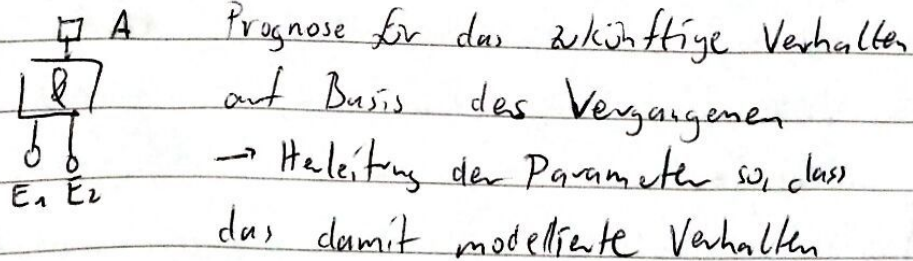 A Prognose für das zukünftige Verhalten
& auf Basis des Vergangenen
→ Herleitung der Parameter so, dass
E1 E2
das damit modellierte Verhalten